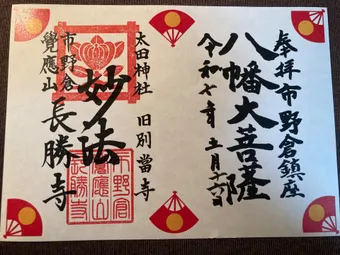 奉拝市野倉鎮座
八幡大菩薩
令和七年 二月十六日
太田神社 旧別當寺
妙法
市野倉
覺應山 長勝寺
市野倉
覺應山
長勝寺